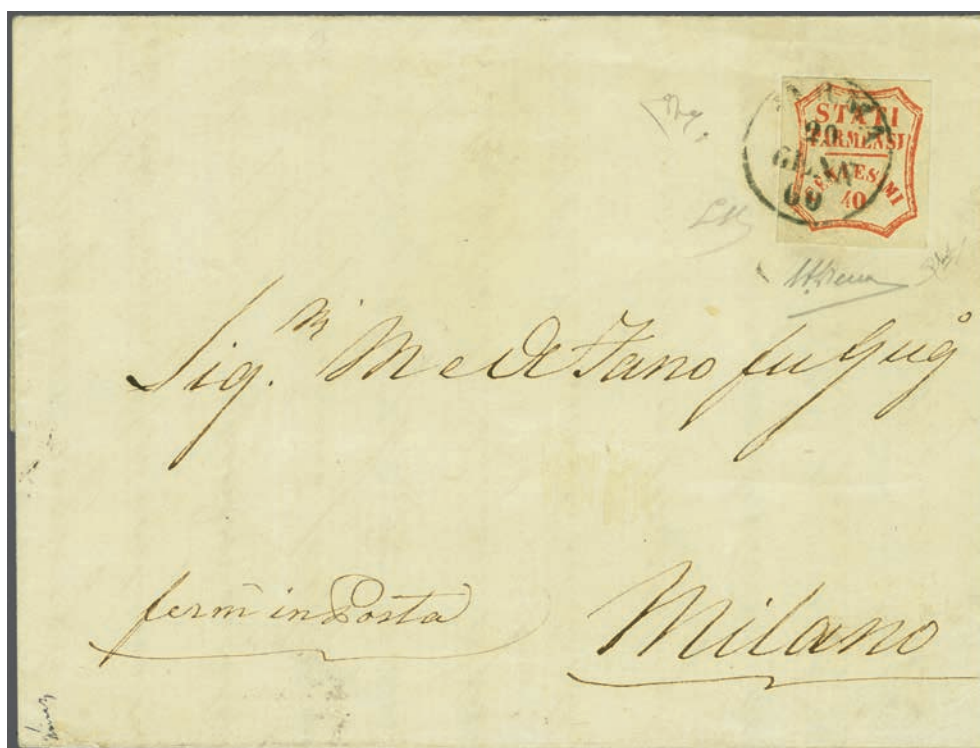 STATI
PARMENSI
CENTESIMI
40
PARMA
20
GENN
60
Sig.ri M e de Fano fu Gug
ferm in Posta
Milano